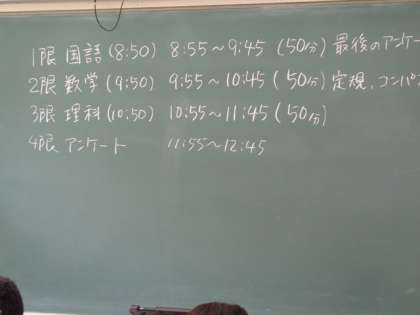 1限 国語 (8:50) 8:55〜9:45 (50分) 最後のアンケー
2限 数学 (9:50) 9:55〜10:45 (50分) 定規、コンパ
3限 理科 (10:50) 10:55〜11:45 (50分)
4限 アンケート 11:55〜12:45